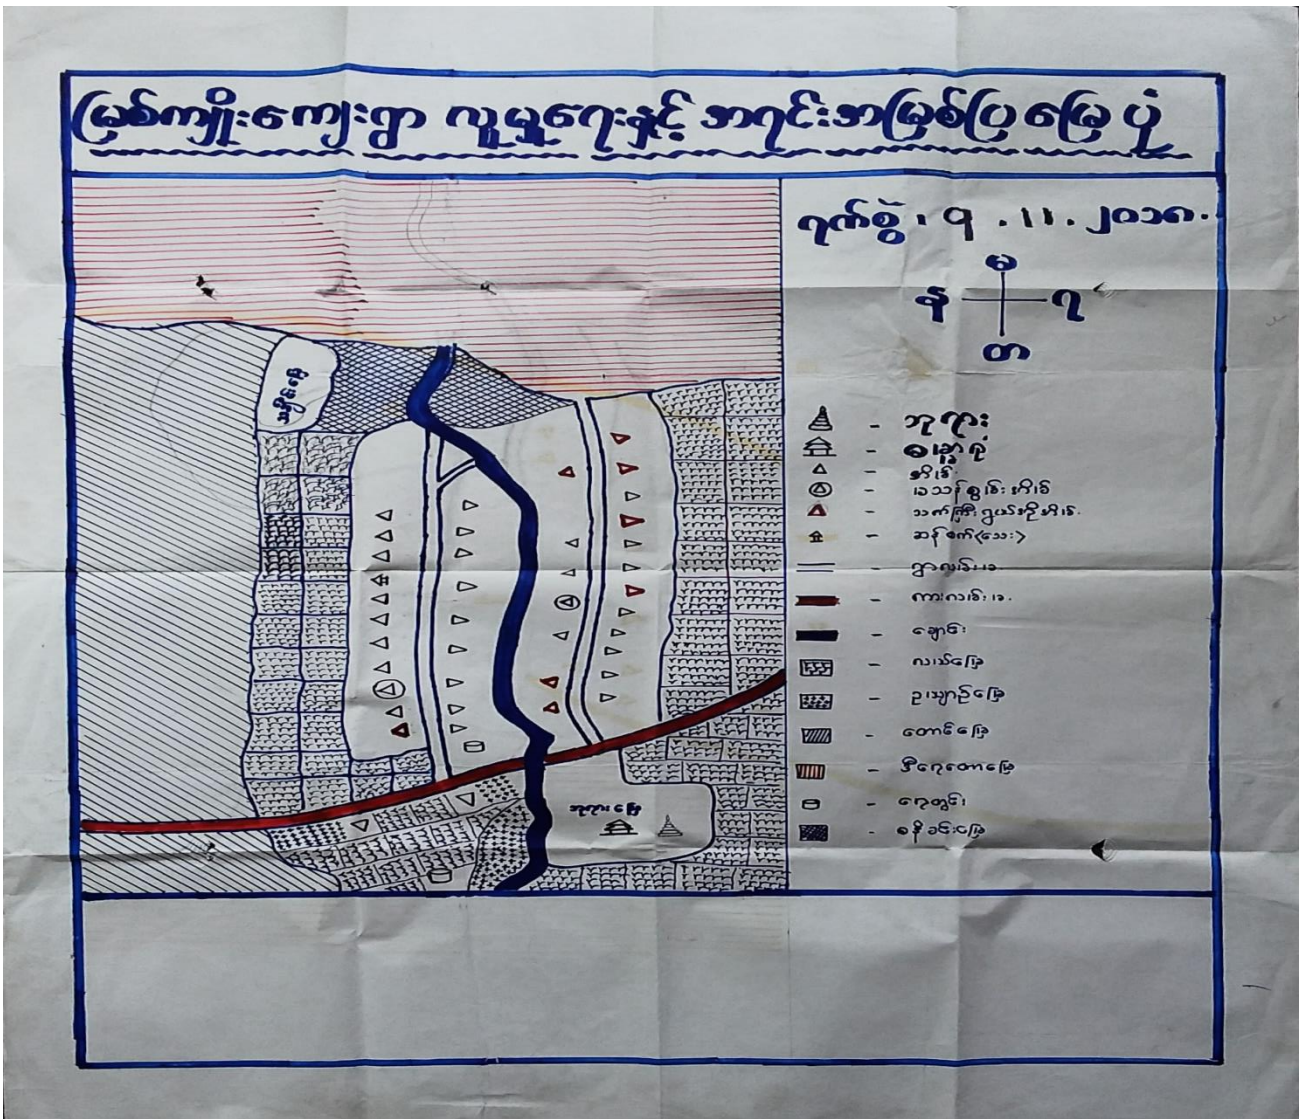 မြစ်ကျိုးကျေးရွာ လူမှုရေးနှင့် အရင်းအမြစ်ပြ မြေပုံ
ရက်စွဲ၊ ၅ . ၁၁ . ၂၀၁၈.
မ
န
ရ
တ
ဘုရား
ဓမ္မာရုံ
အိမ်
သက်ကြီးရွယ်အိုအိမ်.
ဆန်စက်(သေး)
ရွာလမ်း
ကားလမ်း
ချောင်း
လယ်မြေ
ဥယျာဉ်မြေ
တောင်မြေ
ဒီရေတောမြေ
ရေတွင်း
ဓနိခင်းမြေ
ဘုရားမြေ